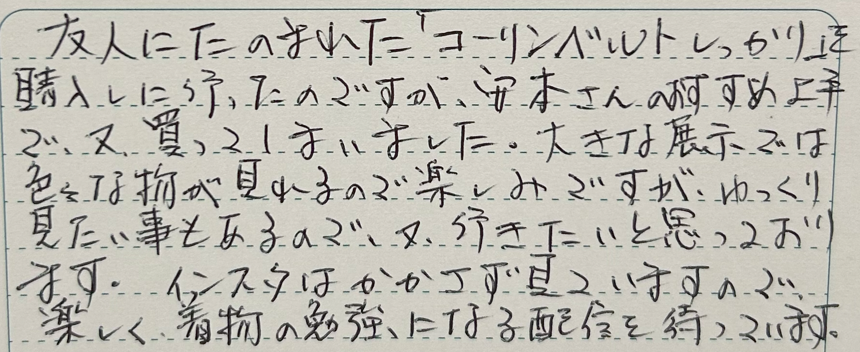 友人にたのまれた「コーリンベルトしっかり」を
購入しに行ったのですが、安本さんのおすすめ上手
で、又、買ってしまいました。大きな展示では
色々な物が見れるので楽しみですが、ゆっくり
見たい事もあるので、又、行きたいと思っており
ます。インスタはかかさず見ていますので、
楽しく、着物の勉強になる配信を待っています。